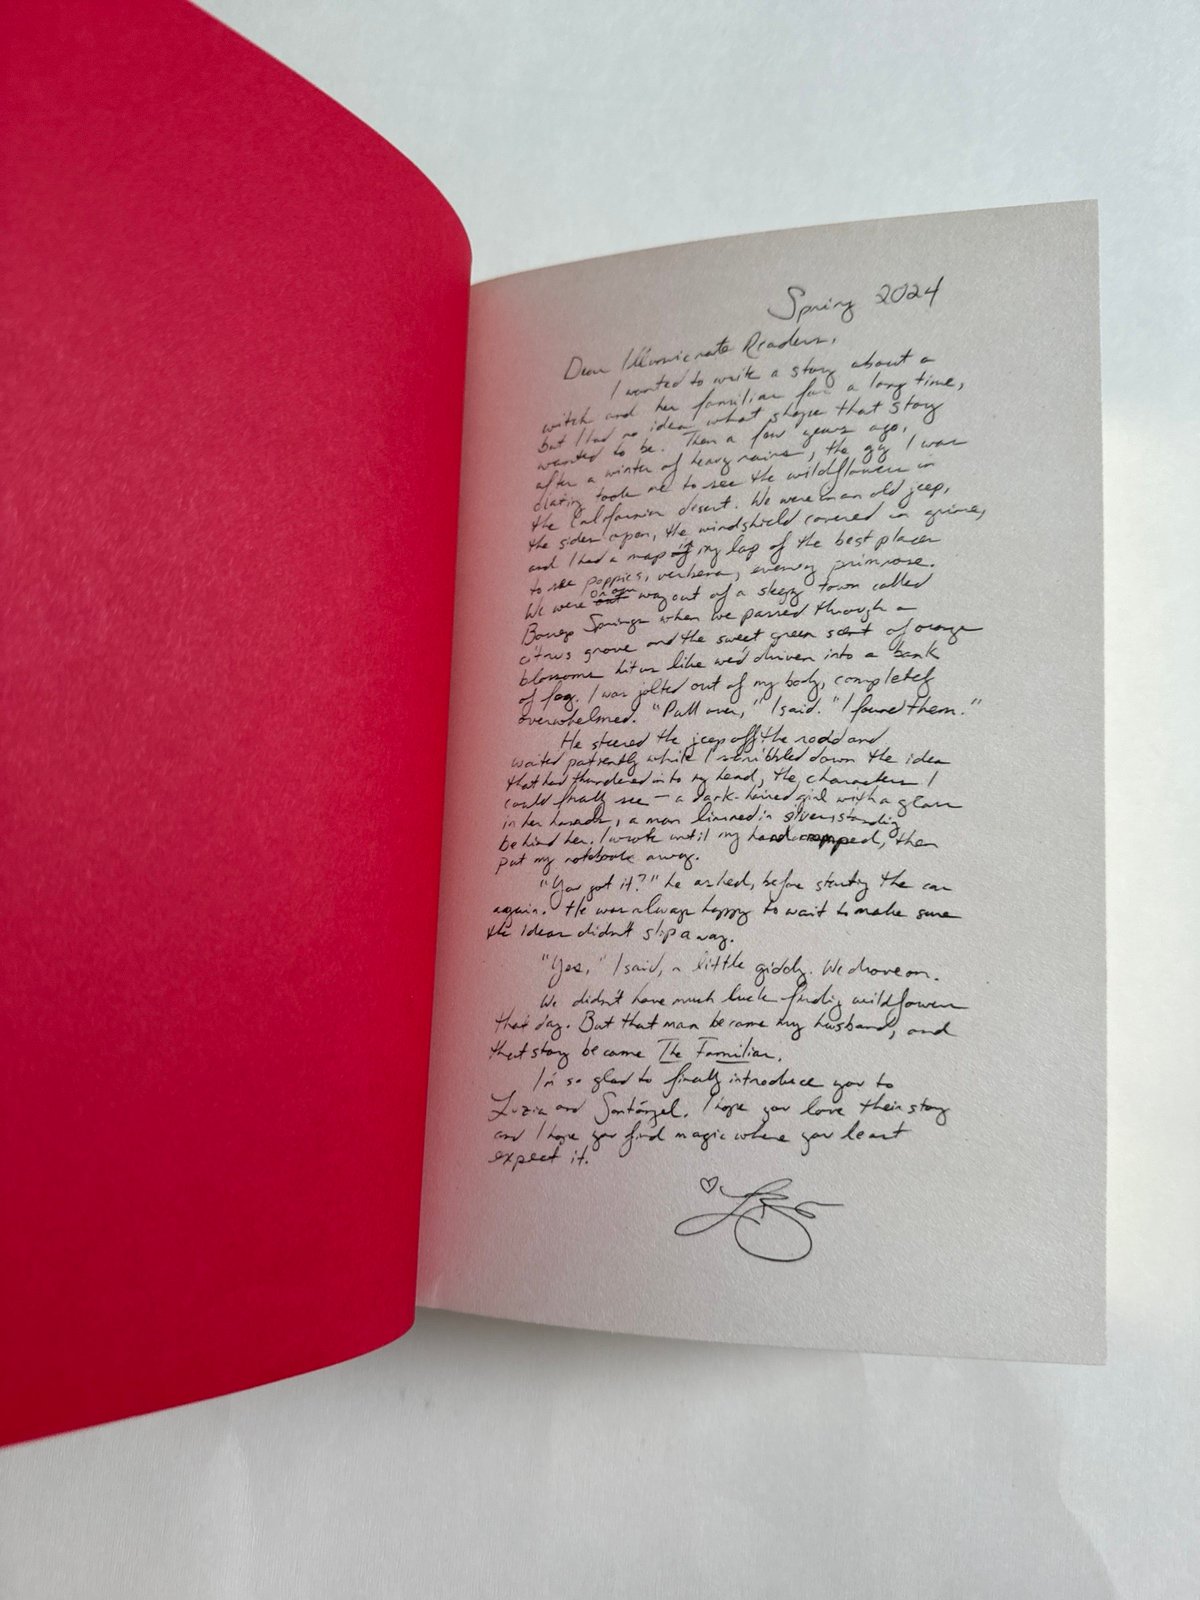 Spring 2024
Dear Illumicrate Readers,
I wanted to write a story about a
witch and her familiar for a long time,
but I had no idea what shape that story
wanted to be. Then a few years ago,
after a winter of heavy rains, the guy I was
dating took me to see the wildflowers in
the California desert. We were in an old jeep,
the sides open, the windshield covered in grime,
and I had a map in my lap of the best places
to see poppies, verbena, evening primrose.
We were on our way out of a sleepy town called
Borrego Springs when we passed through a
citrus grove and the sweet green scent of orange
blossoms hit us like we'd driven into a bank
of fog. I was jolted out of my body, completely
overwhelmed. "Pull over," I said. "I found them."
He steered the jeep off the road and
waited patiently while I scribbled down the idea
that had thundered into my head, the characters I
could finally see — a dark-haired girl with a glass
in her hands, a man limned in silver standing
behind her. I wrote until my hand cramped, then
put my notebook away.
"You got it?" he asked, before starting the car
again. He was always happy to wait to make sure
the ideas didn't slip away.
"Yes," I said, a little giddy. We drove on.
We didn't have much luck finding wildflowers
that day. But that man became my husband, and
that story became The Familiar.
I'm so glad to finally introduce you to
Luzia and Santángel. I hope you love their story
and I hope you find magic where you least
expect it.